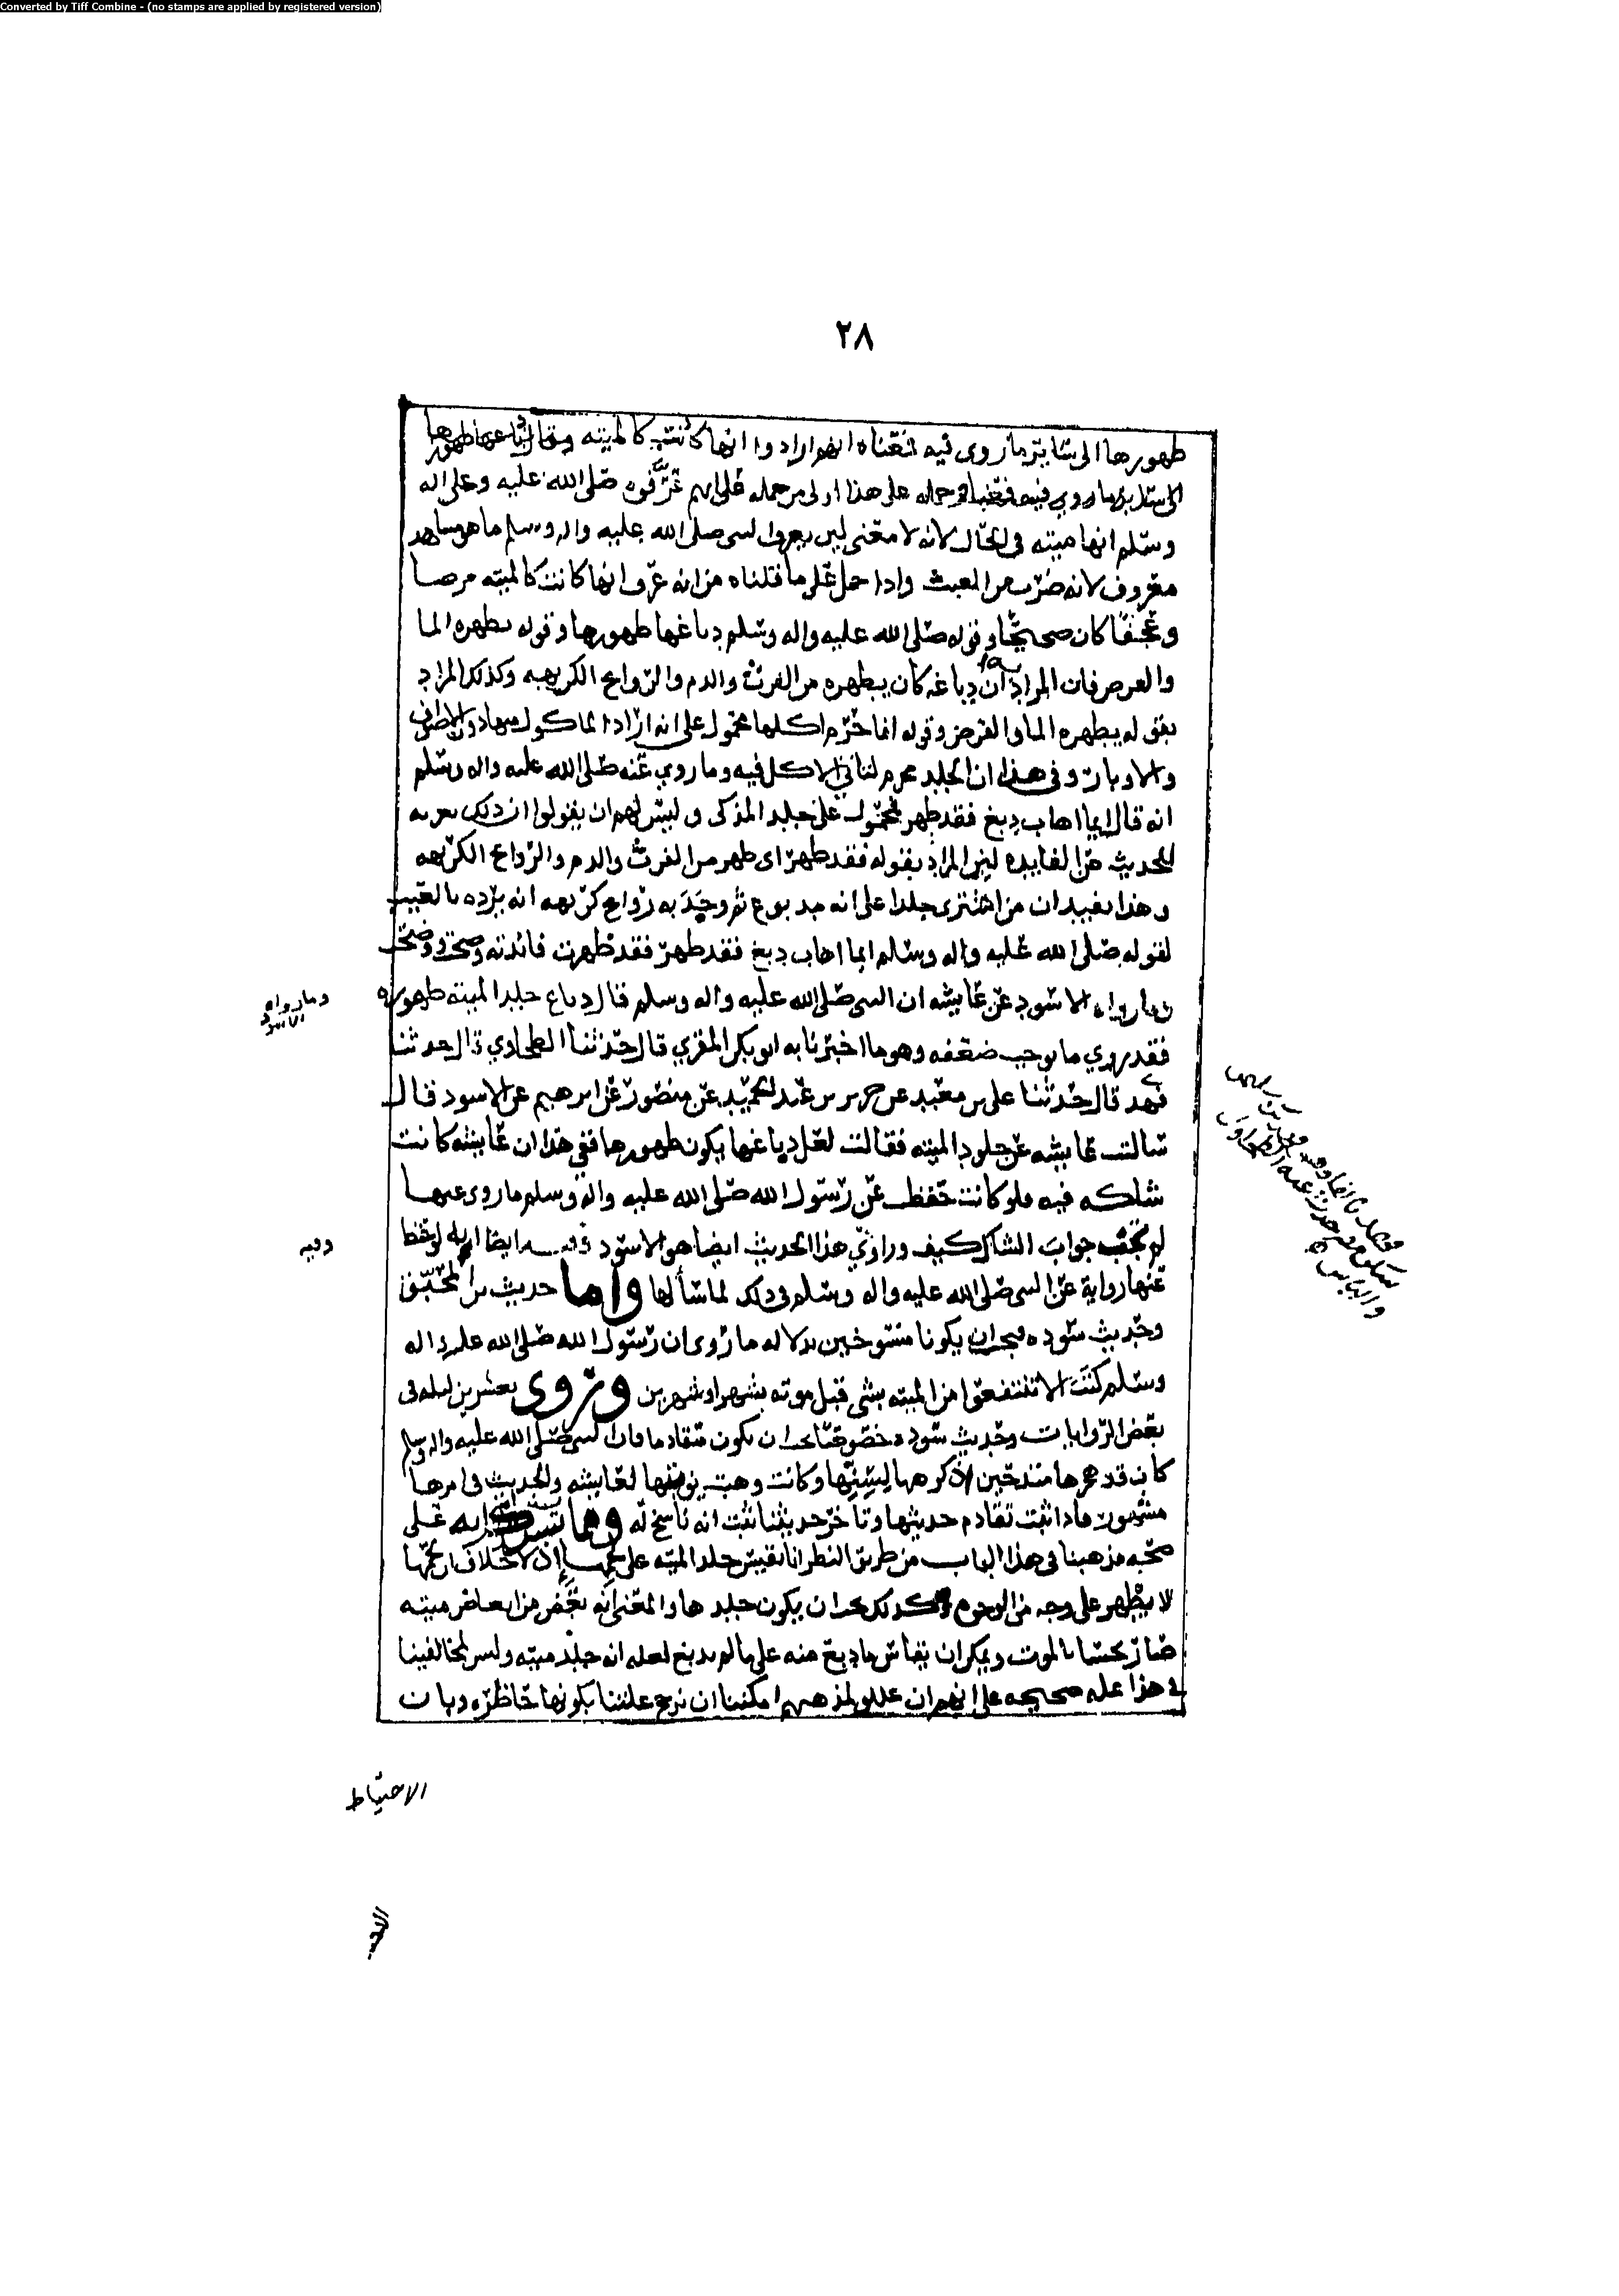 Converted by Tiff Combine - (no stamps are applied by registered version)
٢٨
طهورها الى سائر ما روى فيه فمعناه انهم ارادوا انها كانت كالميته دباغها طهورها
الى سائر ما روي فيه حمله على هذا اولى من حمله على انهم عرّفوه صلى الله عليه وعلى اله
وسلم انها ميته في الحال لانه لا معنى لان يعرفوا النبي صلى الله عليه واله وسلم ما هو مشاهد
معروف لانه ضرب من العبث واذا حمل على ما قلناه من انه عرّف انها كانت كالميته مرضا
وعجفًا كان صحيحًا وقوله صلى الله عليه واله وسلم دباغها طهورها وقوله يطهره الما
والقرض فان المراد به ان دباغه كان يطهره من الفرث والدم والروايح الكريهه وكذلك المراد
بقوله يطهره الما والقرض وقوله انما حرم اكلها محمول على انه اراد الماكول منها دون الاصواف
والاوبار وفي هذا ان الجلد محرم لتاتي الاكل فيه وما روي عنه صلى الله عليه واله وسلم
انه قال ايما اهاب دبغ فقد طهر محمول على جلد المذكى وليس لهم ان يقولوا ان ذلك يعريه
الحديث من الفايده لان المراد بقوله فقد طهر اى طهر من الفرث والدم والروايح الكريهه
وهذا يفيد ان من اشترى جلدا على انه مدبوغ ثم وجد به روايح كريهه انه يرده بالعيب
لقوله صلى الله عليه واله وسلم ايما اهاب دبغ فقد طهر فقد ظهرت فائدته وصحت
وما رواه الاسود عن عايشه ان النبي صلى الله عليه واله وسلم قال دباغ جلد الميته طهوره
فقد روي ما يوجب ضعفه وهو ما اخبرنا به ابو بكر المقري قال حدثنا الطحاوي قال حدثنا
فهد قال حدثنا على بن معبد عن جرير بن عبد الحميد عن منصور عن ابرهيم عن الاسود قال
سالت عايشه عن جلود الميته فقالت لعل دباغها يكون طهورها ففي هذا ان عايشه كانت
شاكه فيه فلو كانت تحفظ عن رسول الله صلى الله عليه واله وسلم ما روي عنها
لم تجب جواب الشاك كيف وراوي هذا الحديث ايضا هو الاسود وفيه ايضا انه لو حفظ
عنها رواية عن النبي صلى الله عليه واله وسلم في ذلك لما سألها واما حديث بن المحبق
وحديث سوده فيجب ان يكونا منسوخين بدلاله ما روى ان رسول الله صلى الله عليه واله
وسلم كتب الا تنتفعوا من الميته بشي قبل موته بشهر او شهرين وروى بعشرين ليله في
بعض الروايات وحديث سوده خصوصًا يجب ان يكون متقادما فان النبي صلى الله عليه واله وسلم
كان قد هجرها منذ حين لسنها وكانت وهبت نوبتها لعايشه والحديث في امرها
مشهور فاذا ثبت تقادم حديثها وتاخر حديثنا ثبت انه ناسخ له ومما على
صحه مذهبنا في هذا الباب من طريق النظر انا نقيس جلد الميته على لحمها اذ لا خلاف ان لحمها
لا يطهر على وجه من الوجوه فكذلك يجب ان يكون جلدها والمعنى انه بعض من ابعاض ميته
صار نجسًا بالموت ويمكن ان يقاس ما دبغ منه على ما لم يدبغ لعله انه جلد ميته وليس لمخالفينا
في هذا عله صحيحه على انهم ان عللوا لمذهبهم امكننا ان نرجح علتنا بكونها حاظره وبان
وما رواه
الاسود
وفيه
الاحتياط